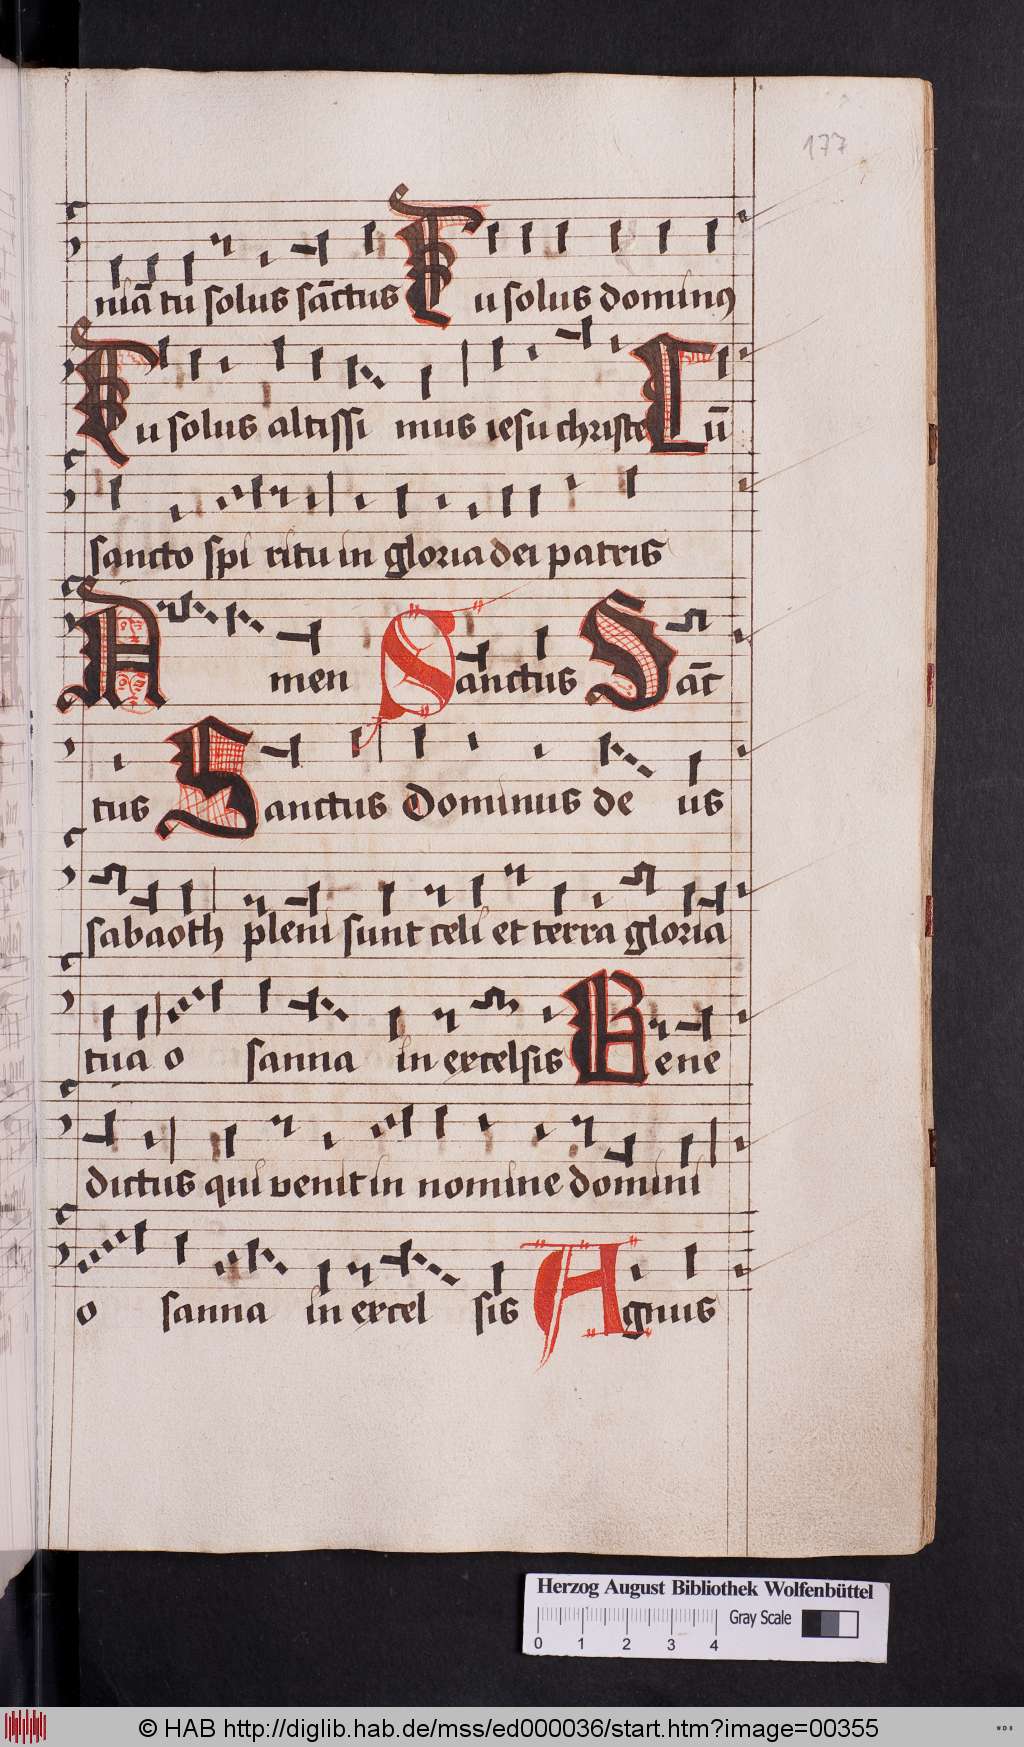 177
niā tu solus sāctus Tu solus dominꝰ
Tu solus altissi mus iesu christe Cū
sancto spi ritu in gloria dei patris
Amen Sanctus Sāc
tus Sanctus Dominus de us
sabaoth pleni sunt celi et terra gloria
tua o sanna in excelsis Bene
dictus qui venit in nomine domini
o sanna in excel sis Agnus
Herzog August Bibliothek Wolfenbüttel
0 1 2 3 4 Gray Scale
© HAB http://diglib.hab.de/mss/ed000036/start.htm?image=00355